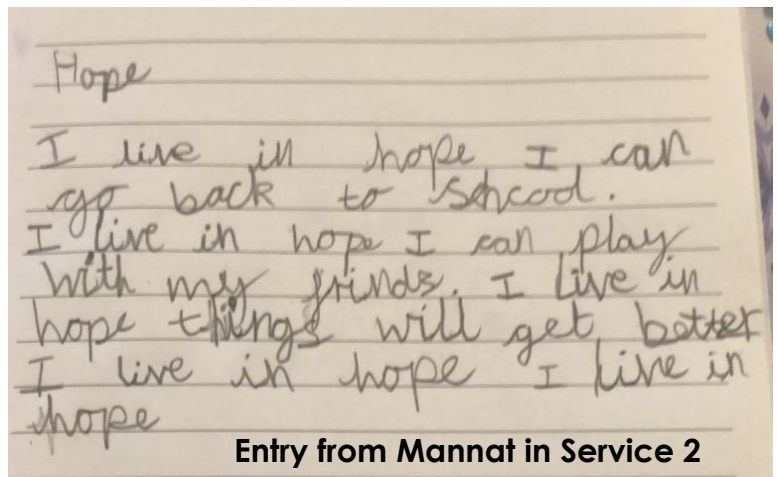 Hope
I live in hope I can
go back to Sehcool.
I live in hope I can play
with my frinds. I live in
hope things will get better
I live in hope I live in
hope
Entry from Mannat in Service 2